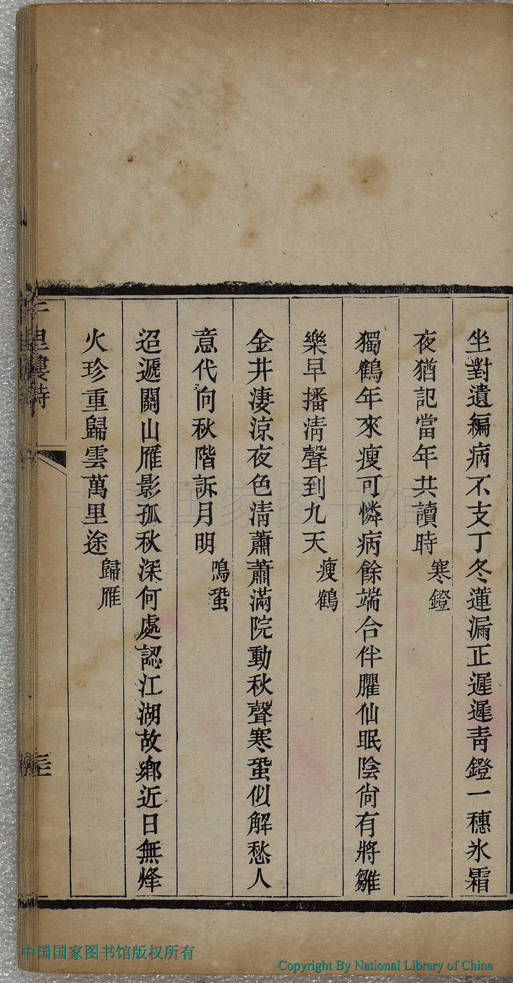 坐對遺編病不支丁冬蓮漏正遲遲青鐙一穗氷霜
夜猶記當年共讀時 寒鐙
獨鶴年來瘦可憐病餘端合伴臞仙眠陰尙有將雛
樂早播清聲到九天 瘦鶴
金井淒涼夜色清蕭蕭滿院動秋聲寒蛩似解愁人
意代向秋階訴月明 鳴蛩
迢遞關山雁影孤秋深何處認江湖故鄉近日無烽
火珍重歸雲萬里途 歸雁
里樓詩
中国国家图书馆版权所有
Copyright By National Library of China